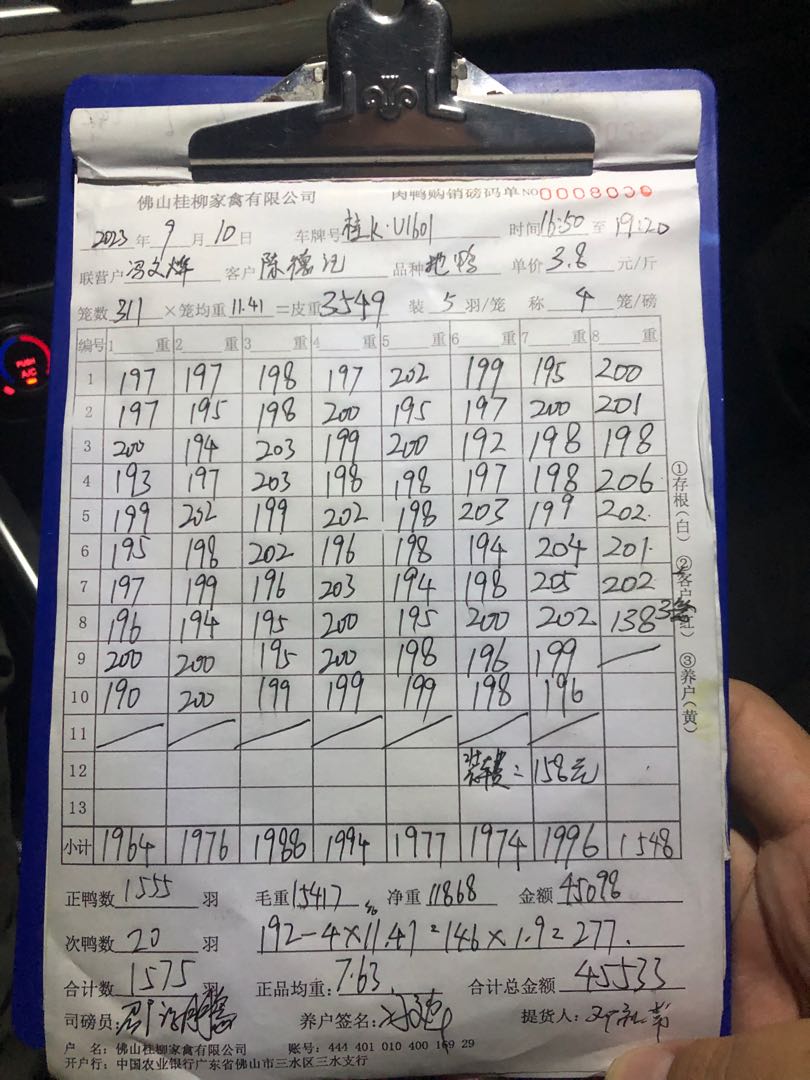 佛山桂柳家禽有限公司 肉鸭购销磅码单 NO 0008039
2023 年 9 月 10 日 车牌号 桂K·U1601 时间 16:50 至 19:20
联营户 冯文烨 客户 陈德记 品种 地鸭 单价 3.8 元/斤
笼数 311 ×笼均重 11.41 =皮重 3549 装 5 羽/笼 称 4 笼/磅
编号 1 重 2 重 3 重 4 重 5 重 6 重 7 重 8 重
1 197 197 198 197 202 199 195 200
2 197 195 198 200 195 197 200 201
3 200 194 203 199 200 192 198 198
4 193 197 203 198 198 197 198 206
5 199 202 199 202 198 203 199 202
6 195 198 202 196 198 194 204 201
7 197 199 196 203 194 198 205 202
8 196 194 195 200 195 200 202 138 3笼
9 200 200 195 200 198 196 199
10 190 200 199 199 199 198 196
11
12 装车费 = 158元
13
小计 1964 1976 1988 1994 1977 1974 1996 1548
正鸭数 1555 羽 毛重 15417 净重 11868 金额 45098
次鸭数 20 羽 192-4×11.41=146×1.9=277.
合计数 1575 羽 正品均重: 7.63 合计总金额 45533
司磅员: 养户签名: 提货人:
户 名: 佛山桂柳家禽有限公司 账号: 444 401 010 400 169 29
开户行: 中国农业银行广东省佛山市三水区三水支行
①存根(白) ②客户(红) ③养户(黄)